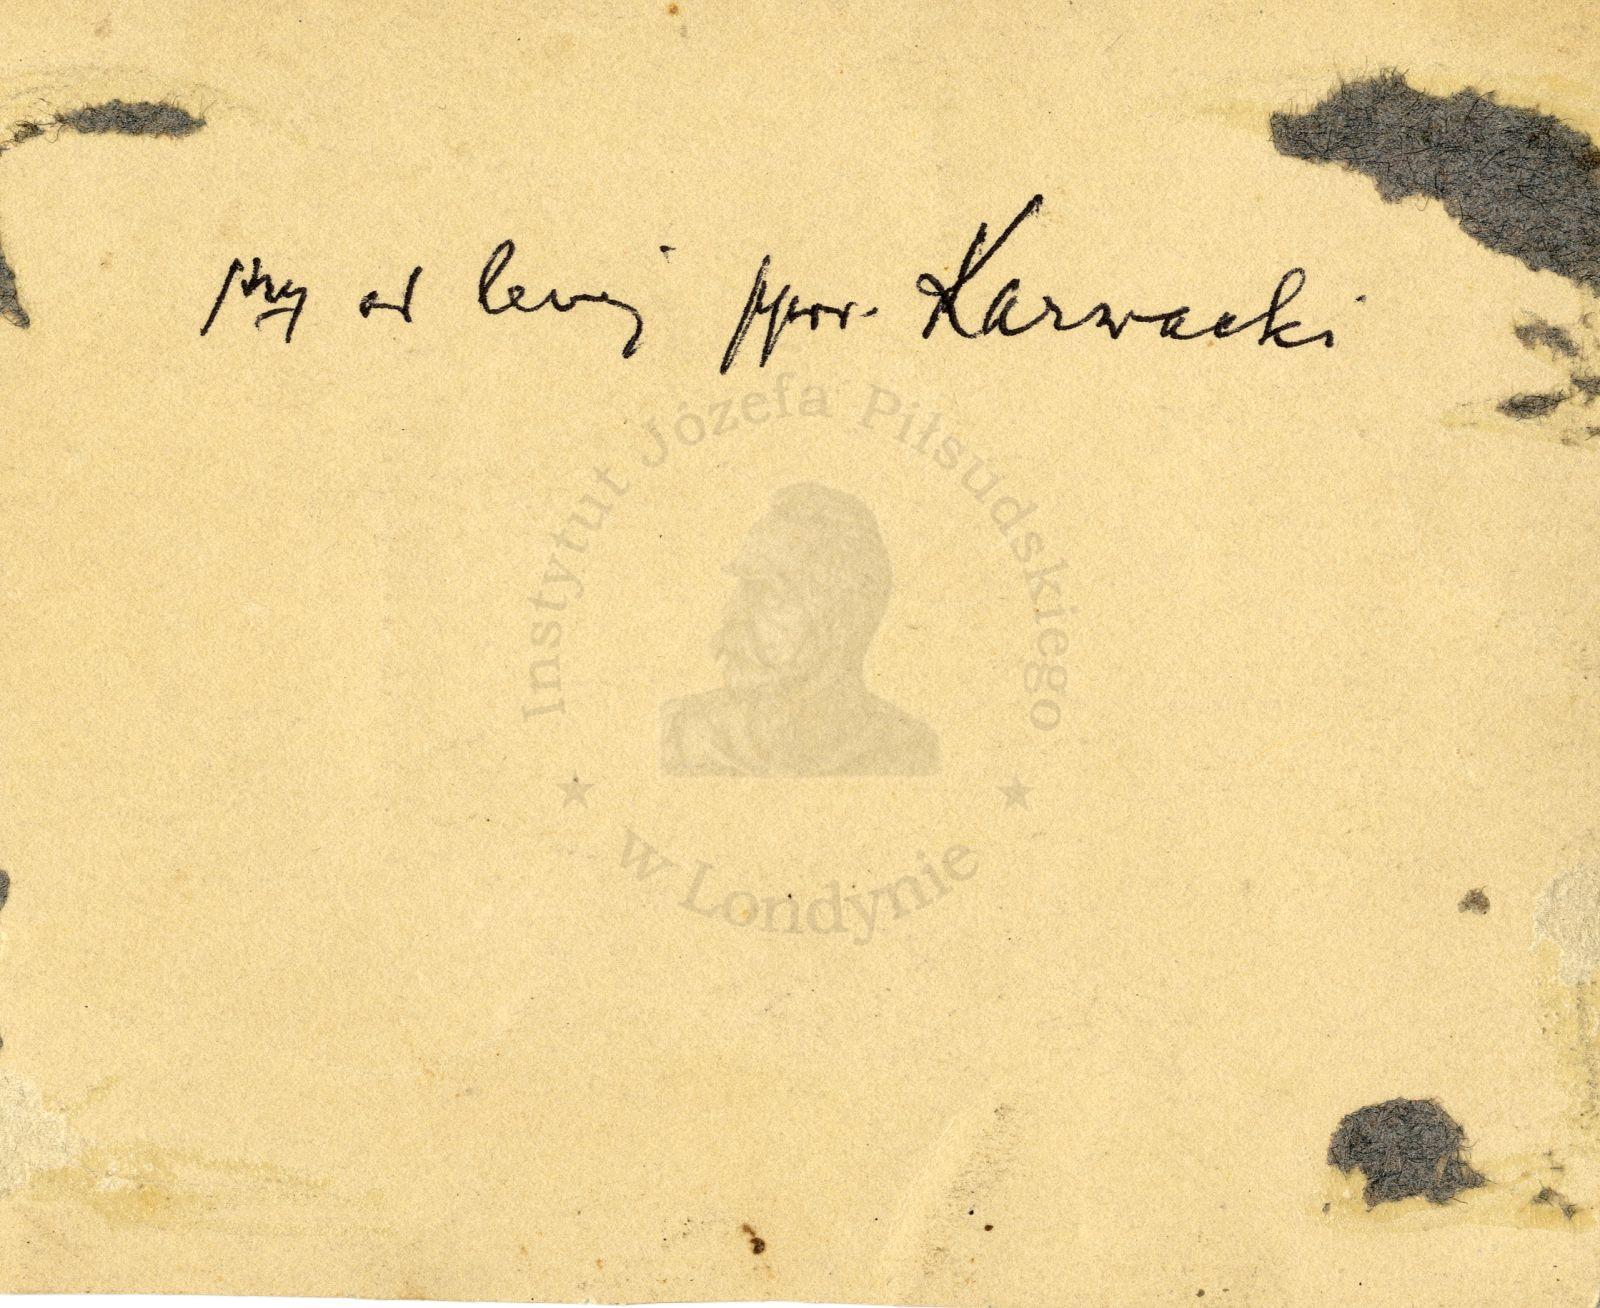 od lewej ppor. Karwacki
Instytut Józefa Piłsudskiego
w Londynie